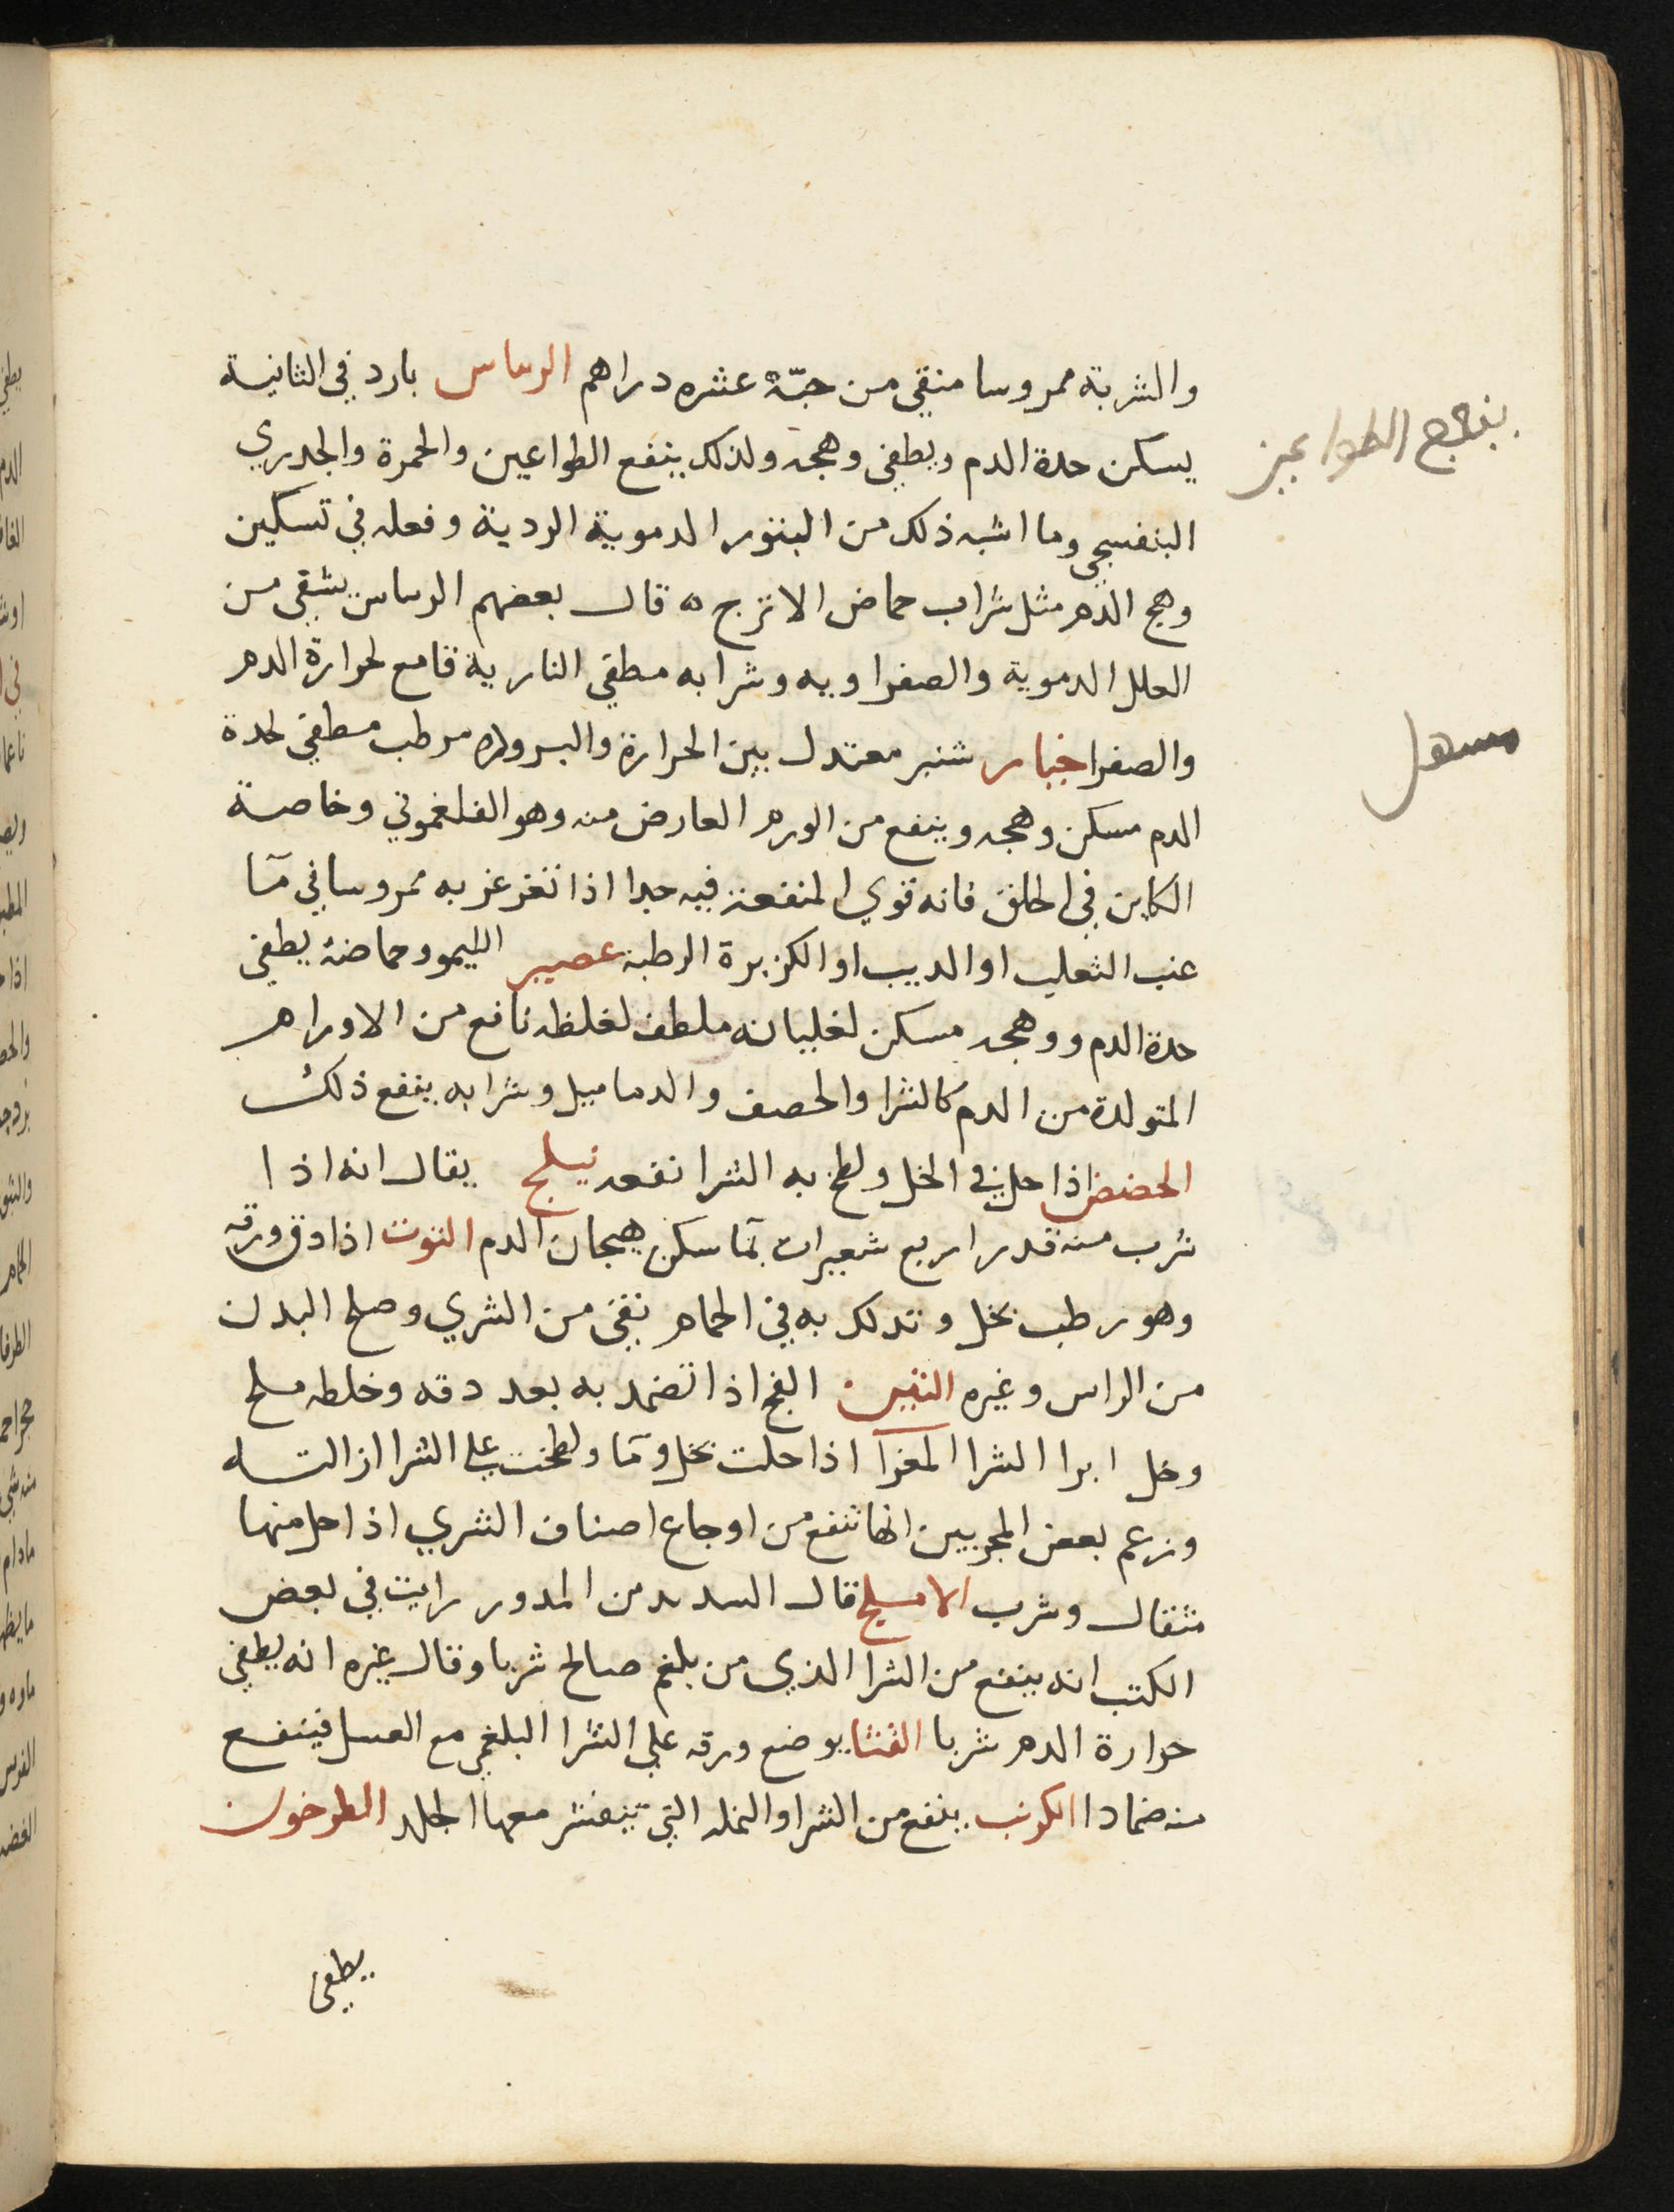 والشربة ممروسا منقي من حبّه عشره دراهم الرىباس بارد في الثانية
يسكن حدة الدم ويطفي وهجه ولذلك ينفع الطواعين والحمرة والجدري
البنفسجي وما اشبه ذلك من البثور الدموية الردية وفعله في تسكين
وهج الدم مثل شراب حماض الاترج ه قال بعضهم الرىباس يشفي من
العلل الدموية والصفراويه وشرابه مطفي النارية قامع لحرارة الدم
والصفرا خيار شنبر معتدل بين الحرارة والبروده مرطب مطفي لحدة
الدم مسكن وهجه وينفع من الورم العارض منه وهو الفلغموني وخاصة
الكاين في الحلق فانه قوي المنفعة فيه جدا اذا تغرغر به ممروسا في مآ
عنب الثعلب او الدبب او الكزبرة الرطبة عصير الليمو وحماضه يطفي
حدة الدم ووهجه مسكن لغليانه ملطف لغلظه نافع من الاورام
المتولدة من الدم كالشرا والحصف والدماميل وشرابه ينفع ذلك
الحضض اذا حل في الخل ولطخ به الشرا نفعه نيلج يقال انه اذا
شرب منه قدر اربع شعيرات بمآ سكن هيجان الدم التوت اذا دق ورقه
وهو رطب بخل وتدلك به في الحمام نقي من الشري وصلح البدن
من الراس وغيره التين الفج اذا تضمد به بعد دقه وخلطه ملح
وخل ابرا الشرا المغرآ اذا حلت بخل ومآ ولطخت علي الشرا ازالته
وزعم بعض المجربين انها تنفع من اوجاع اصناف الشري اذا حل منها
مثقال وشرب الامسلج قال السديد من المدور رايت في بعض
الكتب انه ينفع من الشرا الذي من بلغم صالح شربا وقال غيره انه يطفي
حرارة الدم شربا القثا يوضع ورقه علي الشرا البلغمي مع العسل فينفع
منه ضمادا الكرنب ينفع من الشرا والنمله التي يتقشر معها الجلد الطرخون
يطفي
ينفع الطواعين
مسهل